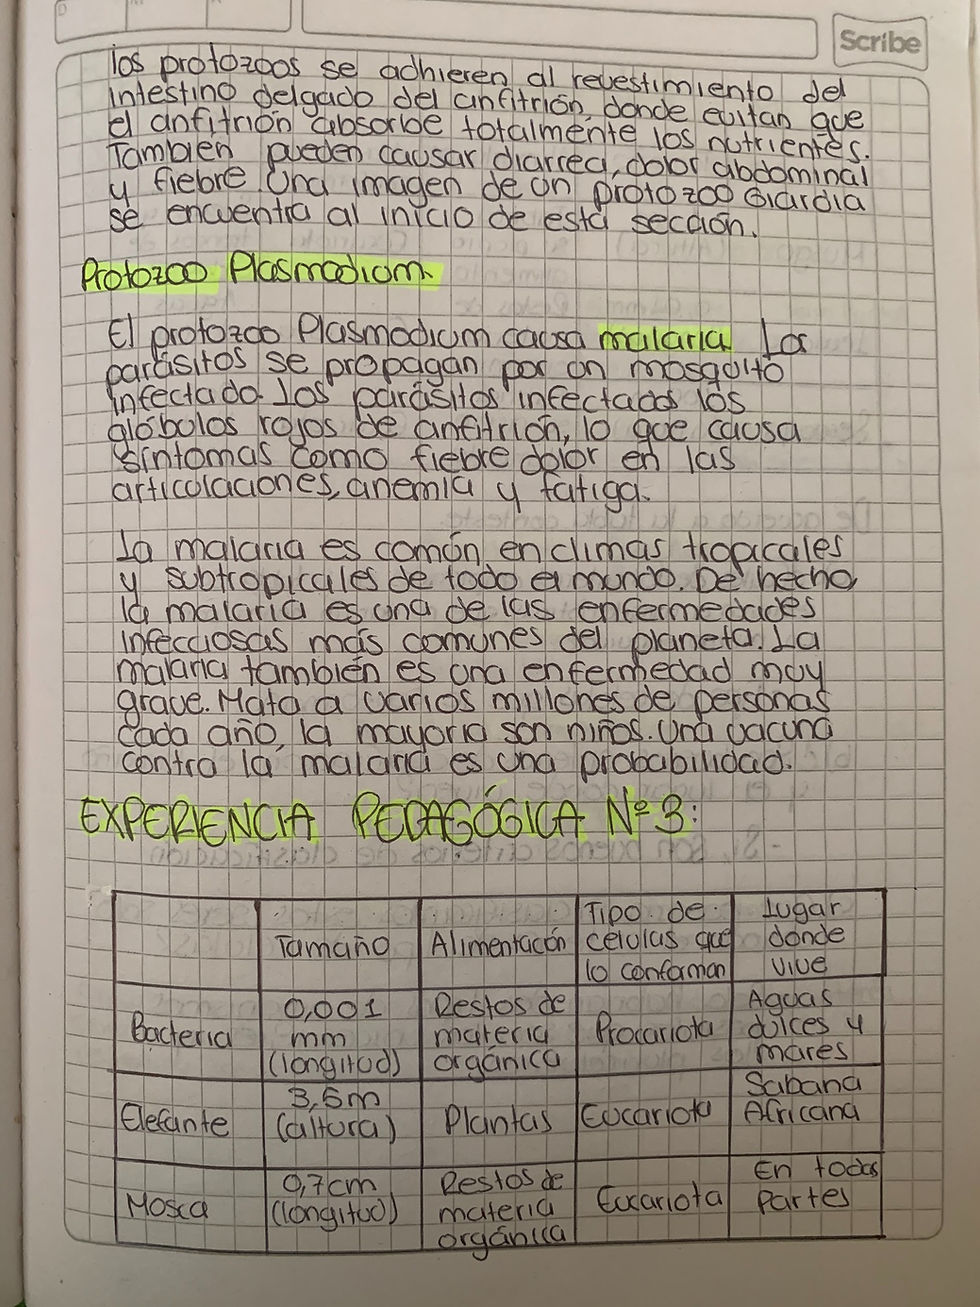 Scribe
los protozoos se adhieren al revestimiento del
intestino delgado del anfitrión, donde evitan que
el anfitrión absorbe totalmente los nutrientes.
También pueden causar diarrea, dolor abdominal
y fiebre. Una imagen de un protozoo Giardia
se encuentra al inicio de esta sección.
Protozoo Plasmodium.
El protozoo Plasmodium causa malaria Los
parásitos se propagan por un mosquito
infectado. Los parásitos infectados los
glóbulos rojos de anfitrión, lo que causa
síntomas como fiebre dolor en las
articulaciones, anemia y fatiga.
La malaria es común en climas tropicales
y subtropicales de todo el mundo. De hecho
la malaria es una de las enfermedades
infecciosas más comunes del planeta. La
malaria también es una enfermedad muy
grave. Mata a varios millones de personas
cada año, la mayoria son niños. Una vacuna
contra la malaria es una probabilidad.
EXPERIENCIA PEDAGÓGICA Nº 3:
Tamaño Alimentación Tipo de celulas que lo conforman Lugar donde vive
Bacteria 0,001 mm (longitud) Restos de materia orgánica Procariota Aguas dulces y mares
Elefante 3,5m (altura) Plantas Eucariota Sabana Africana
Mosca 0,7cm (longitud) Restos de materia orgánica Eucariota En todas Partes